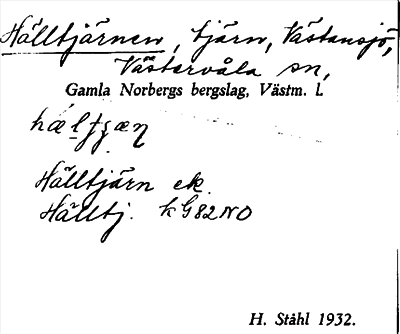 Hälltjärnen, tjärn, Västansjö,
Västervåla sn,
Gamla Norbergs bergslag, Västm. l.
Hälltjärn ek.
Hälltj. kG82NO
H. Ståhl 1932.